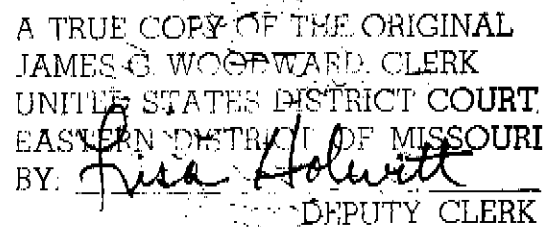 A TRUE COPY OF THE ORIGINAL
JAMES G. WOODWARD. CLERK
UNITED STATES DISTRICT COURT
EASTERN DISTRICT OF MISSOURI
BY: Lisa Holwitt
DEPUTY CLERK